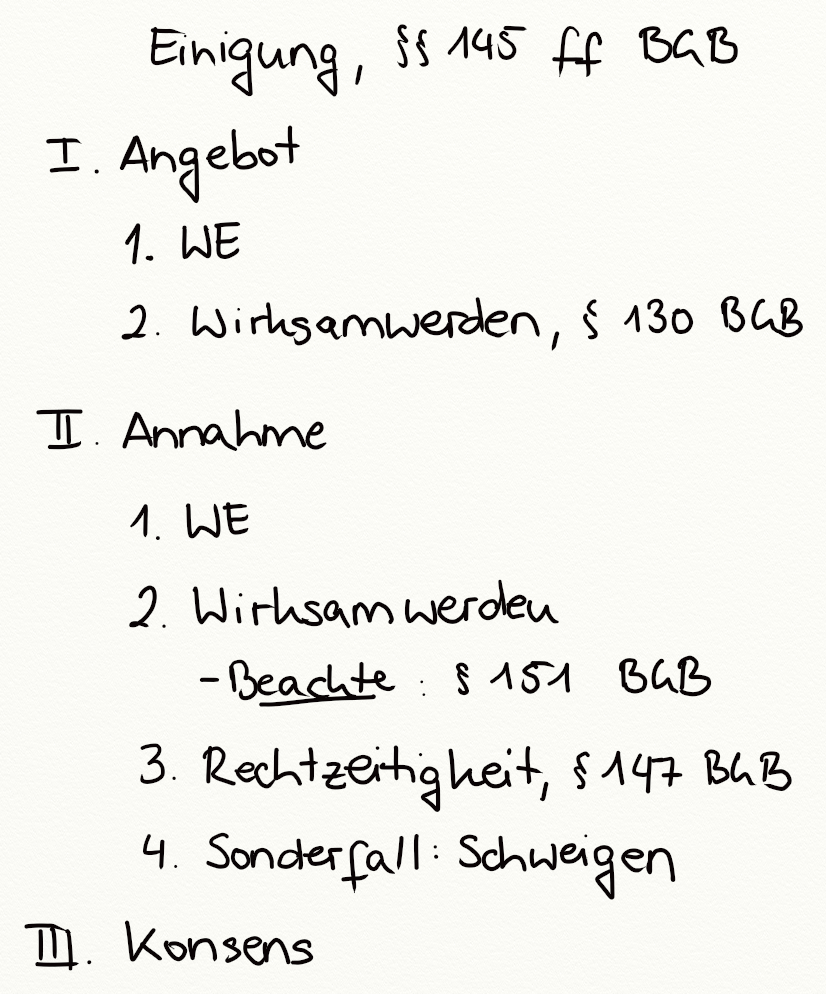 Einigung, §§ 145 ff BGB
I. Angebot
1. WE
2. Wirksamwerden, § 130 BGB
II. Annahme
1. WE
2. Wirksamwerden
- Beachte : § 151 BGB
3. Rechtzeitigkeit, § 147 BGB
4. Sonderfall: Schweigen
III. Konsens